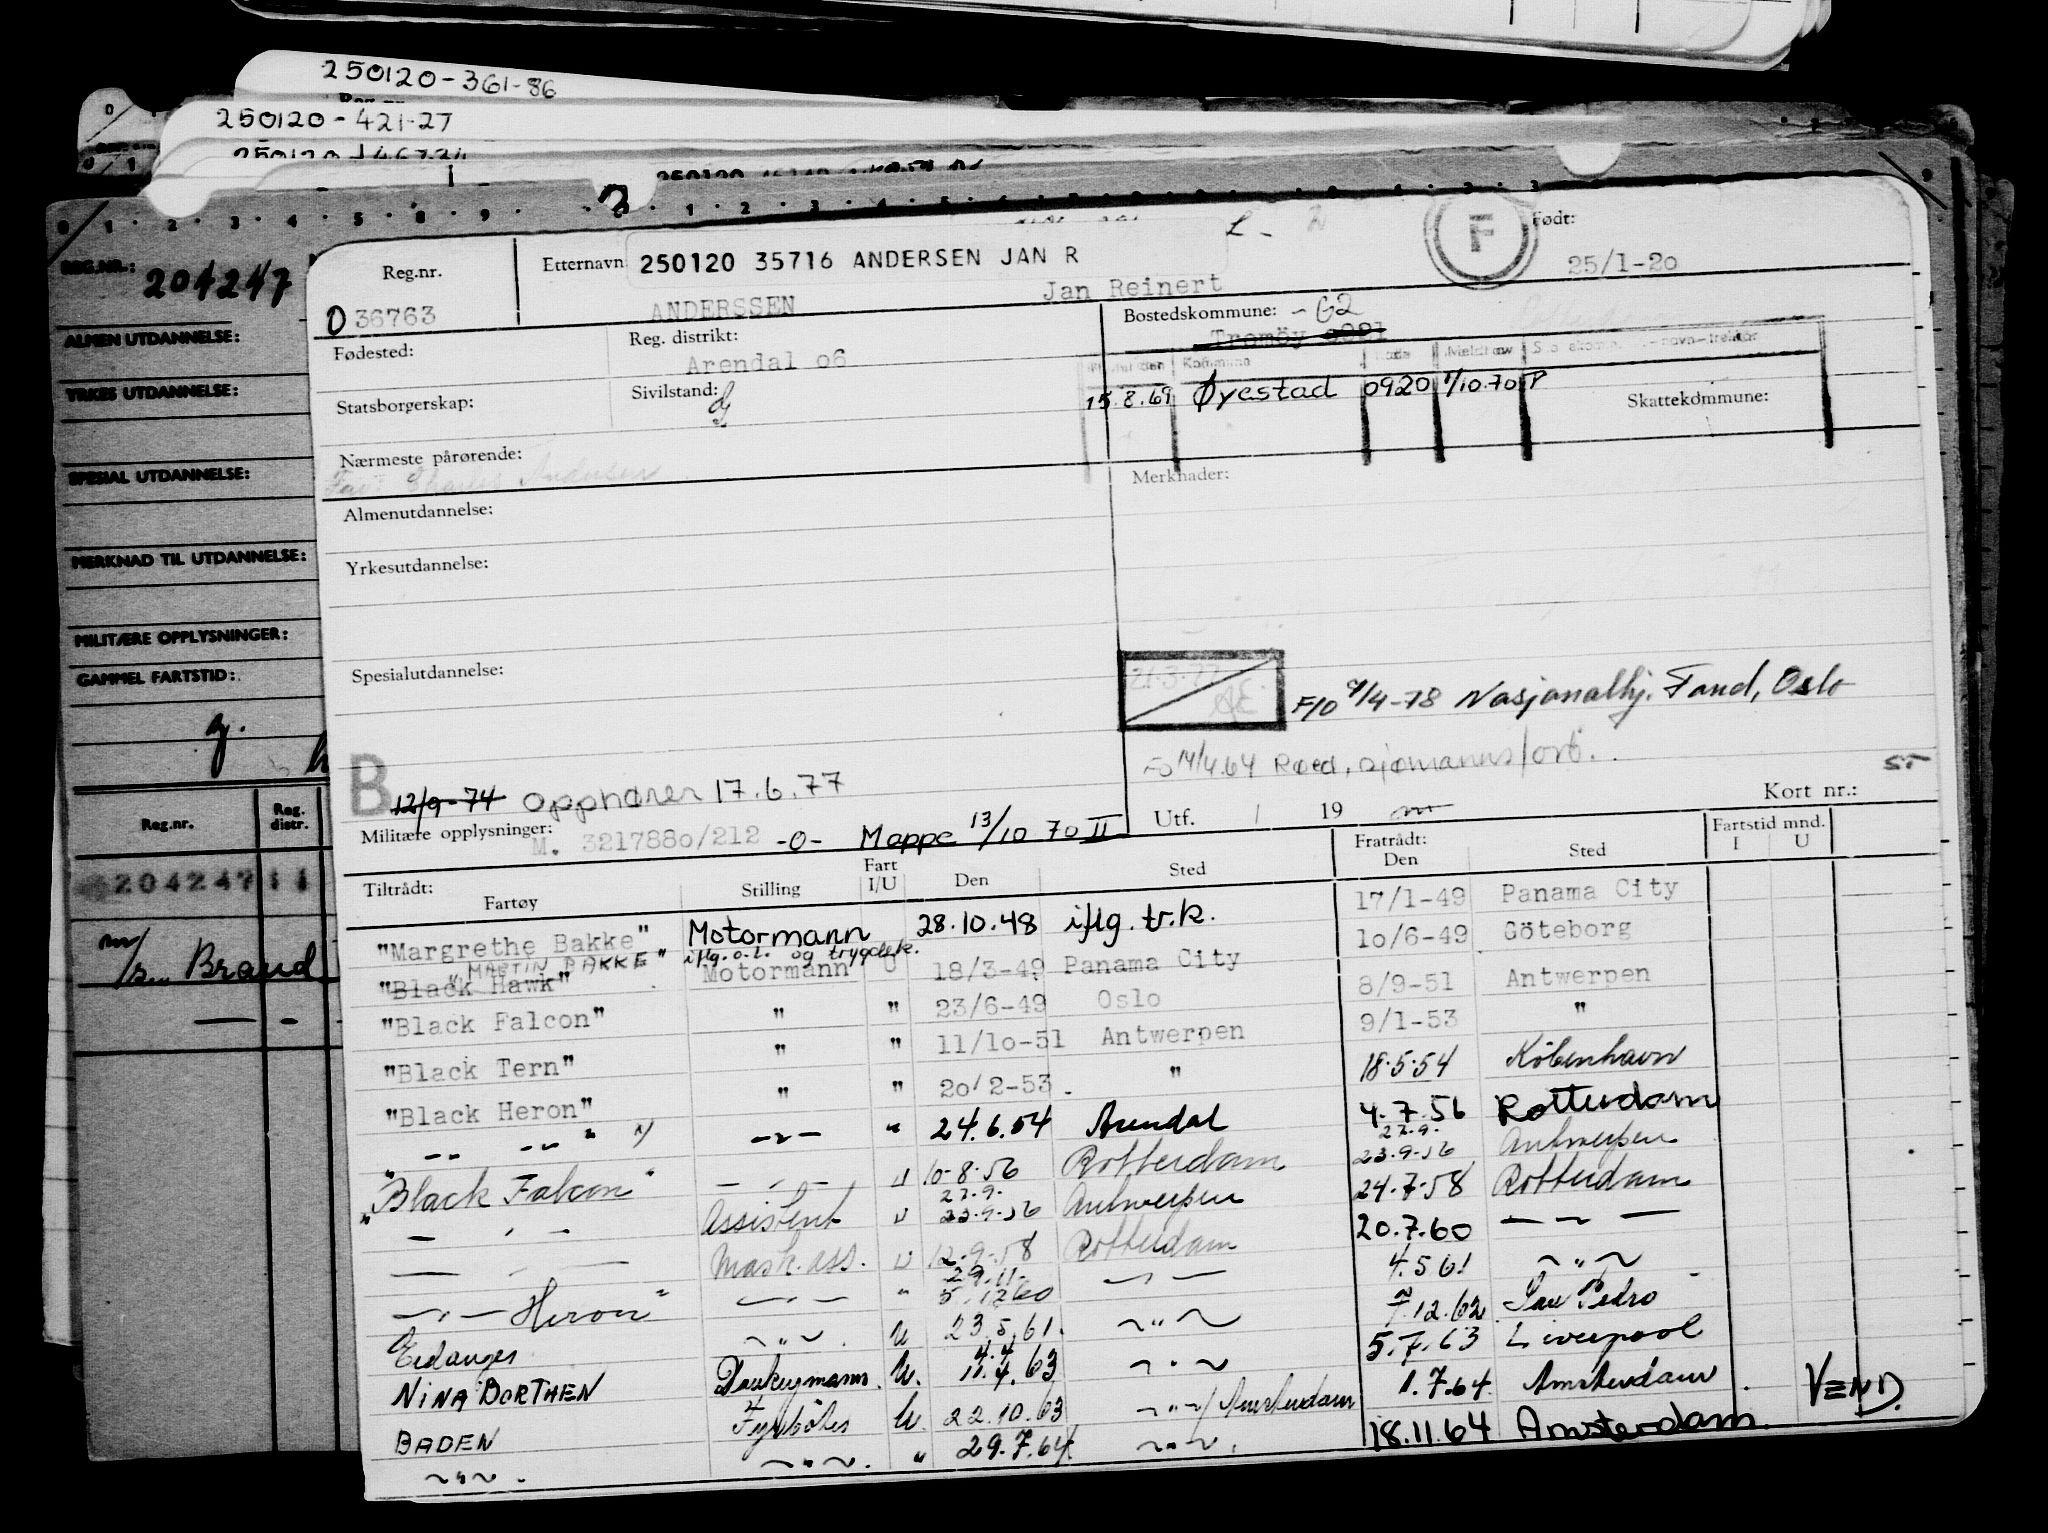 250120-361-86
250120-421-27
REG.NR.: 204247
ALMEN UTDANNELSE:
YRKES UTDANNELSE:
SPESIAL UTDANNELSE:
MERKNAD TIL UTDANNELSE:
MILITÆRE OPPLYSNINGER:
GAMMEL FARTSTID:
Reg.nr. Reg. distr.
204247 11
Brand
Reg.nr. Etternavn 250120 35716 ANDERSEN JAN R F Født:
O 36763 ANDERSSEN Jan Reinert 25/1-20
Fødested: Reg. distrikt: Arendal o6 Bostedskommune: -G2
Tromöy
Kommune
Statsborgerskap: Sivilstand: g 15.8.69 Øyestad 0920 1/10.70 P Skattekommune:
Nærmeste pårørende: Merknader:
Far: Charles Andersen
Almenutdannelse:
Yrkesutdannelse:
Spesialutdannelse: 21.3.77 F/O 4/4-78 Nasjonalhj. Fond, Oslo
Fo 14/4.64 Roed, sjømannsfort.
B 12/9-74 opphører 17.6.77 Utf. / 19 Kort nr.:
Militære opplysninger: M. 3217880/212 -0- Mappe 13/10 70 II
Tiltrådt: Fartøy Stilling Fart I/U Den Sted Fratrådt: Den Sted Fartstid mnd. I U
"Margrethe Bakke" Motormann 28.10.48 iflg. tr.k. 17/1-49 Panama City
"MARTIN BAKKE" iflg. o.l. og trygdek.
"Black Hawk" Motormann U 18/3-49 Panama City 10/6-49 Göteborg
"Black Falcon" " " 23/6-49 Oslo 8/9-51 Antwerpen
"Black Tern" " " 11/10-51 Antwerpen 9/1-53 "
"Black Heron" " " 20/2-53 " 18.5.54 København
" -- -"- -"- " 24.6.54 Arendal 4.7.56 Rotterdam
"Black Falcon" -"- U 10-8-56 Rotterdam 27.9. 23.9.56 Antwerpen
-"- Assistent U 27.9. 23.9.56 Antwerpen 24.7.58 Rotterdam
-"- Mask.ass. U 12.9.58 Rotterdam 20.7.60 -"-
-"- Heron" -"- " 29.11. 5.12 60 -"- 4.5 61 -"-
Eidanger -"- U 23.5.61. -"- 7.12.62 San Pedro
NINA BORTHEN Donkeymann U. 4.4. 11.4.63 -"- 5.7.63 Liverpool
BADEN Fyrbøter U. 22.10.63 -"-/Amsterdam 1.7.64 Amsterdam
-"-. -"-. " 29.7.64 -"-. 18.11.64 Amsterdam
VEND.